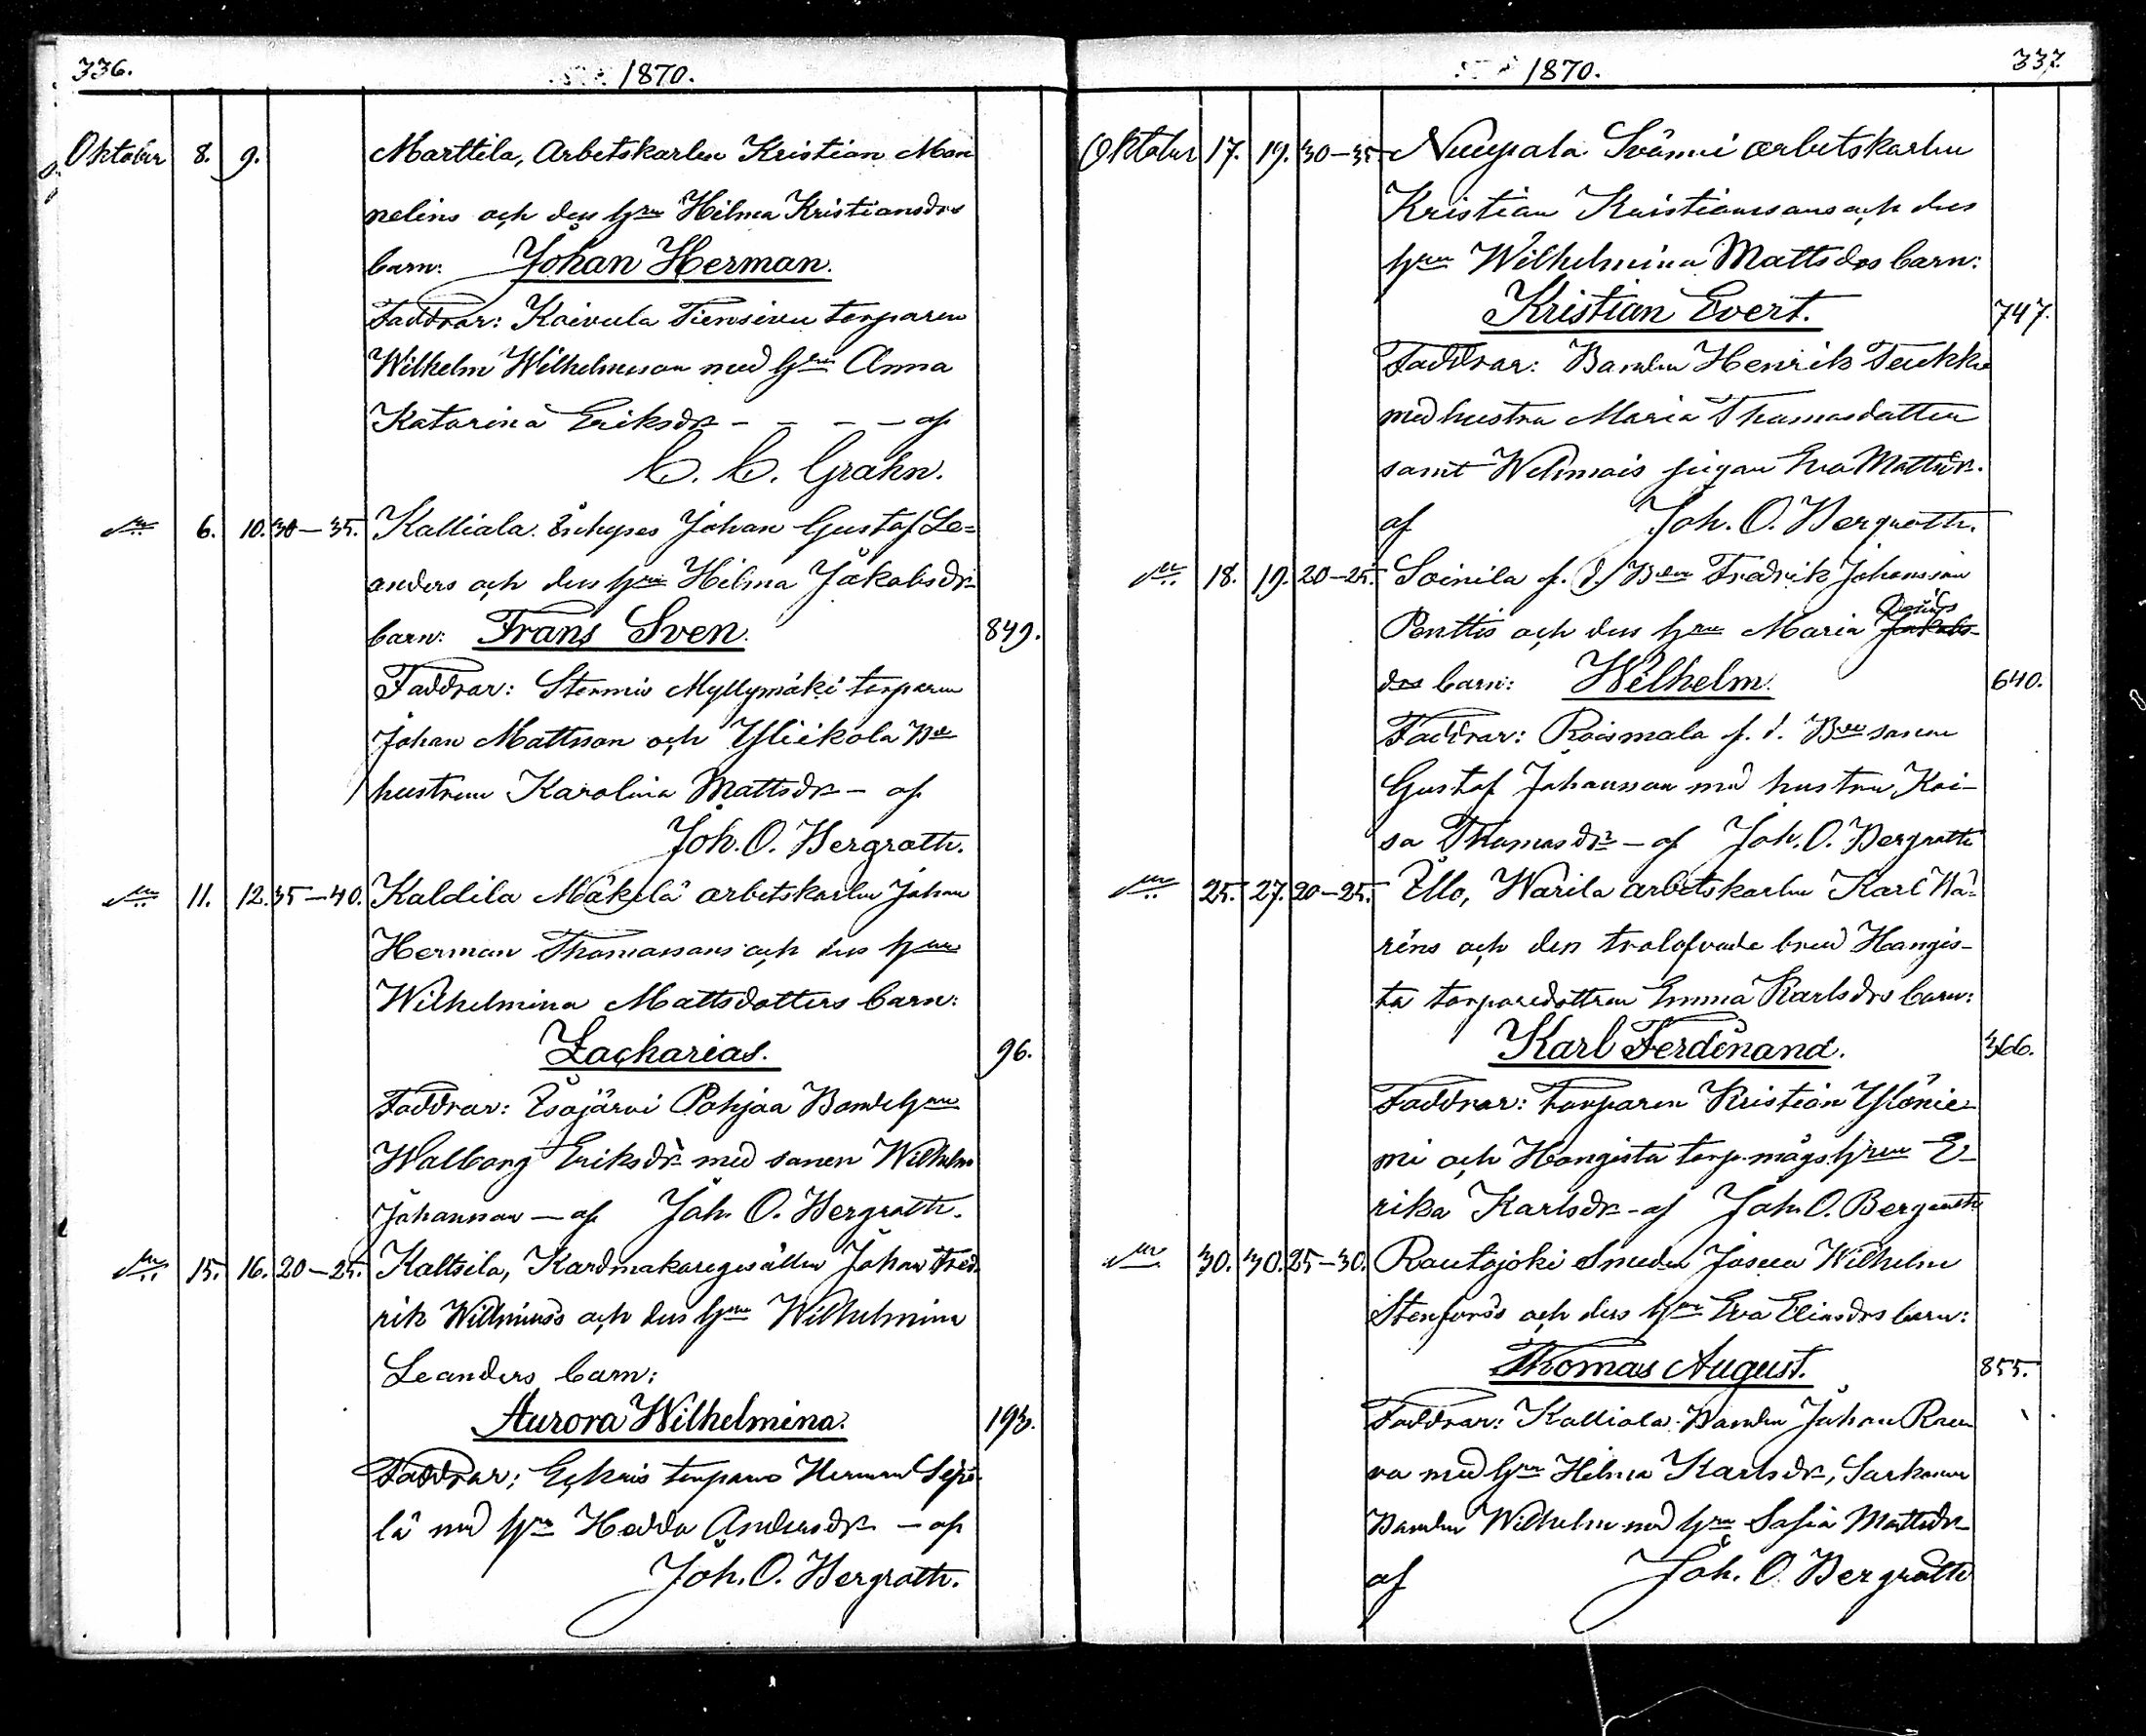 336.
1870.
Oktober 8. 9. Marttila, Arbetskarlen Kristian Man
nelins och dess hru Hilma Kristiansdrs
barn: Johan Herman.
Faddrar: Koivula Tiensivu torparen
Wilhelm Wilhelmsson med hru Anna
Katarina Eriksdr - - - - af
C. C. Grahn.
6. 10. 30-35. Kalliala Inhyses Johan Gustaf Le=
anders och dess hru Hilma Jakobsdr
barn: Frans Sven. 849.
Faddrar: Stenmis Myllymäki torparen
Johan Mattsson och Yliskola
hustrun Karolina Mattsdr - af
Joh. O. Bergroth.
11. 12. 35-40. Kaldila Mäkelä arbetskarlen Johan
Herman Thomassons och dess hru
Wilhelmina Mattsdotters barn:
Zacharias. 96.
Faddrar: Isojärvi Pohjaa Bonde hru
Walborg Eriksdr med sonen Wilhelm
Johansson - af Joh. O. Bergroth.
15. 16. 20-25. Kaltsila, Kardmakaregesällen Johan Fred
rik Willmins's och dess hru Wilhelmina
Leanders barn:
Aurora Wilhelmina. 193.
Faddrar: torpare Herman Sepä-
lä med hru Hedda Andersdr - af
Joh. O. Bergroth.
1870.
337.
Oktober 17. 19. 30-35 Nuupala arbetskarlen
Kristian Kristianssons och dess
hru Wilhelmina Mattsdrs barn:
Kristian Evert. 747.
Faddrar: Bonden Henrik Teukku
med hustru Maria Thomasdotter
samt pigan Eva Mattsdr.
af Joh. O. Bergroth.
18. 19. 20-25. Soinila f. d. Bden Fredrik Johansson
Penttis och dess hru Maria Davids
drs barn: Wilhelm. 640.
Faddrar: Roismala f. d. sonen
Gustaf Johansson med hustru Kai-
sa Thomasdr - af Joh. O. Bergroth
25. 27. 20-25. Illo, Warila arbetskarlen Karl Wa-
réns och den trolofvade brud Hangis-
ta torparedottren Emma Karlsdrs barn:
Karl Ferdinand. 366.
Faddrar: Torparen Kristian Ylönie-
mi och Hongista torp. mågs hrun E-
rika Karlsdr - af Joh. O. Bergroth
30. 30. 25-30. Rautajoki Smeden Josua Wilhelm
Stenfors's och dess hru Eva Eliasdrs barn:
Thomas August. 855.
Faddrar: Kalliala Bonden Johan Rau
va med hru Hilma Karlsdr,
Bonden Wilhelm med hru Sofia Mattsdr
af Joh. O. Bergroth